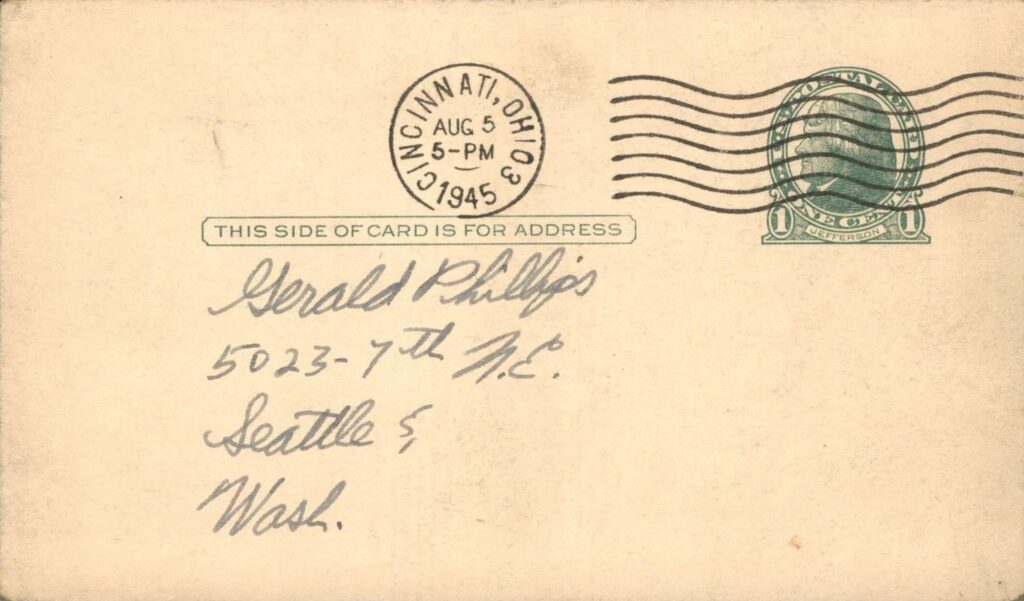 CINCINNATI, OHIO 3
AUG 5
5-PM
1945
U.S. POSTAL CARD
ONE CENT
1 JEFFERSON 1
THIS SIDE OF CARD IS FOR ADDRESS
Gerald Phillips
5023-7th N.E.
Seattle 5,
Wash.